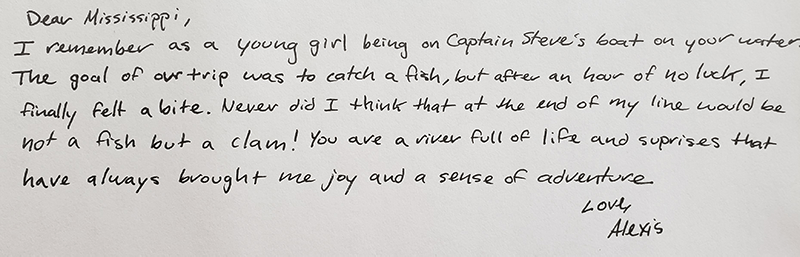 Dear Mississippi,
I remember as a young girl being on Captain Steve's boat on your water.
The goal of our trip was to catch a fish, but after an hour of no luck, I
finally felt a bite. Never did I think that at the end of my line would be
not a fish but a clam! You are a river full of life and suprises that
have always brought me joy and a sense of adventure
Love,
Alexis